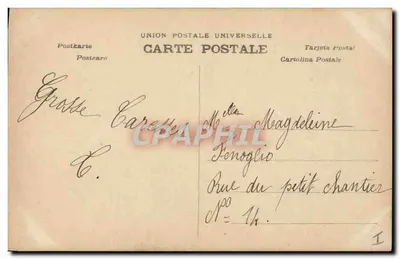 UNION POSTALE UNIVERSELLE
Postkarte
Postcare
CARTE POSTALE
Tarjeta Postal
Cartolina Postale
Grosse Caresse
C.
Melle Magdeleine
Fenoglio
Rue du petit Chantier
No = 14.
CPRTAPHILA
I